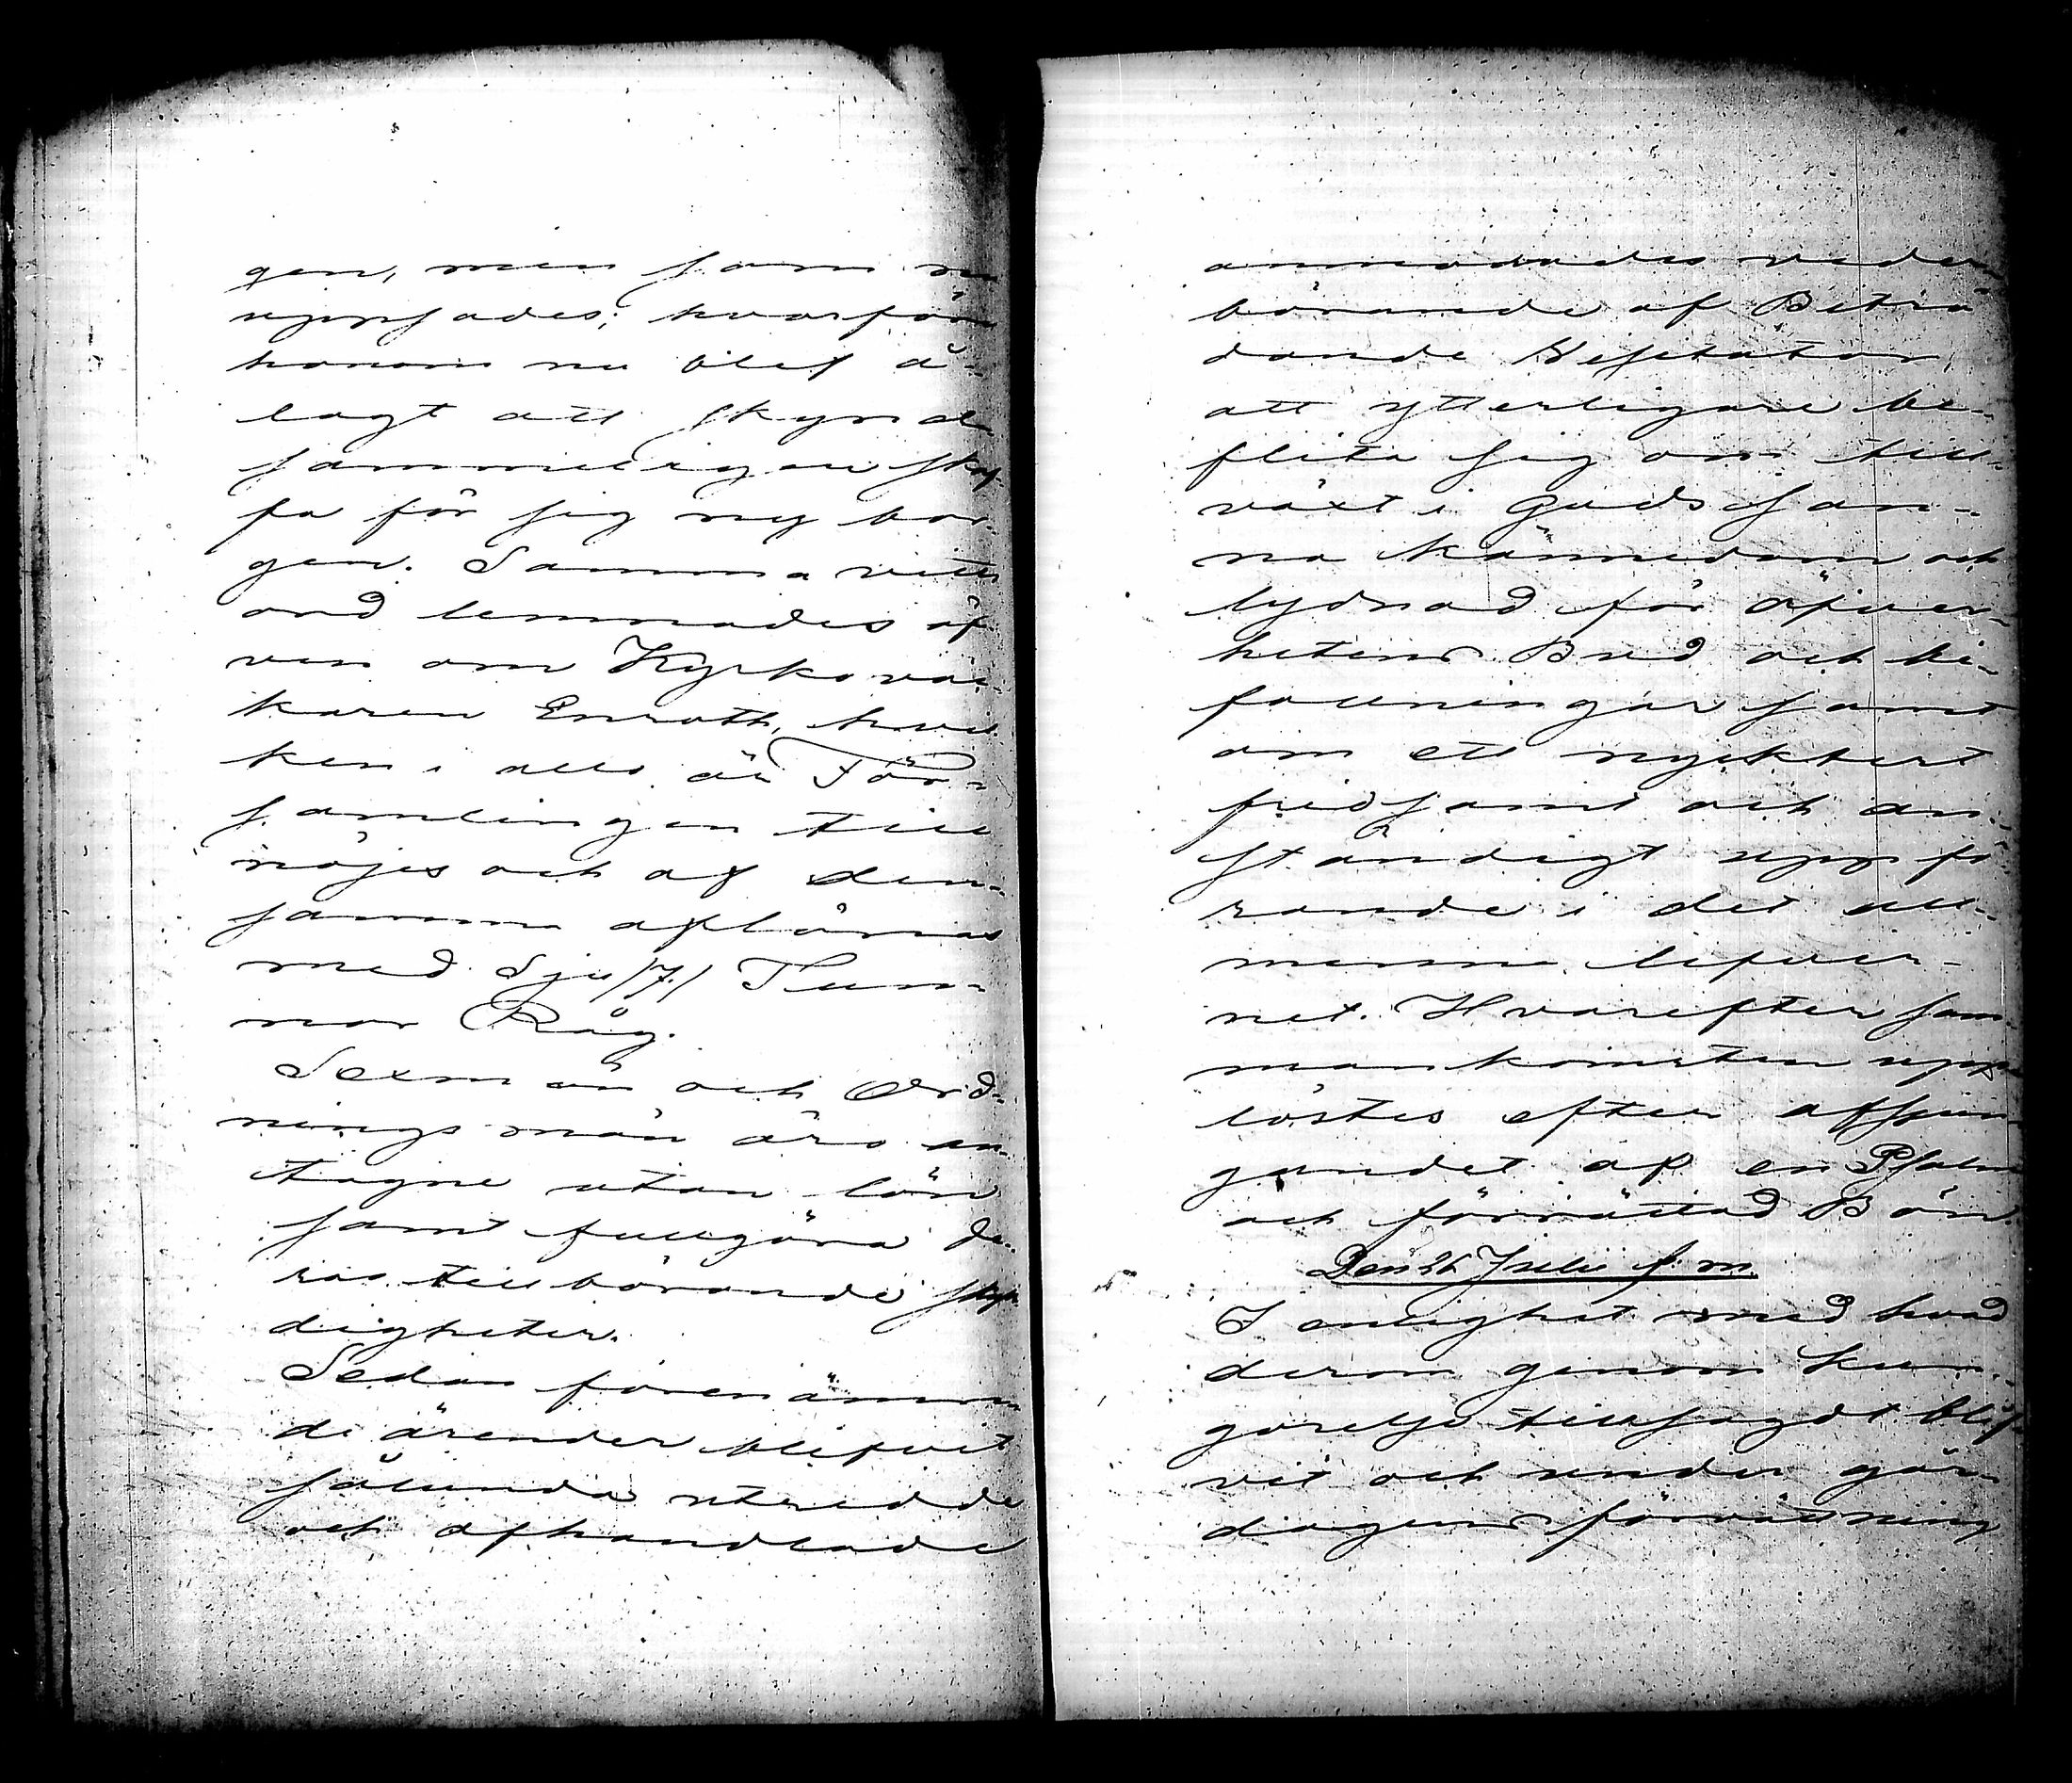 gen, men som nu
uppsades; hvarföre
honom nu blef å-
lagt att skynd-
sammeligen skaf-
fa för sig ny bor-
gen. Samma vitts
ord lemnades äf-
ven om Kyrkovak-
karen Enroth, hvil-
ken i allo är För-
samlingen till
nöjes och af den-
samma aflönas
med Sju /7./ Tun-
nor Råg.
Sexmän och Ord-
ningsmän äro an-
tagne utan lön
samt fullgöra de-
ras tillbörande skyl-
digheter.
Sedan förenämn
de ärender blifvit
sålunda utredde
och afhandlade
anmodades veder-
börande af Beträ
dande Visitator,
att ytterligare be-
flita sig om till-
växt i Guds san-
na kännedom och
lydnad för öfver-
hetens Bud och be-
fallningar samt
om ett nycktert
fridsamt och an-
ständigt uppfö
rande i det all-
menna lefver-
net. Hvarefter sam-
mankomsten upp-
löstes efter afsjun-
gandet af en Psalm
och förrättad Bön.
Den 26 Julii f. m.
I enlighet med hvad
derom genom kun-
görelse tillsagdt blif-
vit och under går-
dagens förrättning